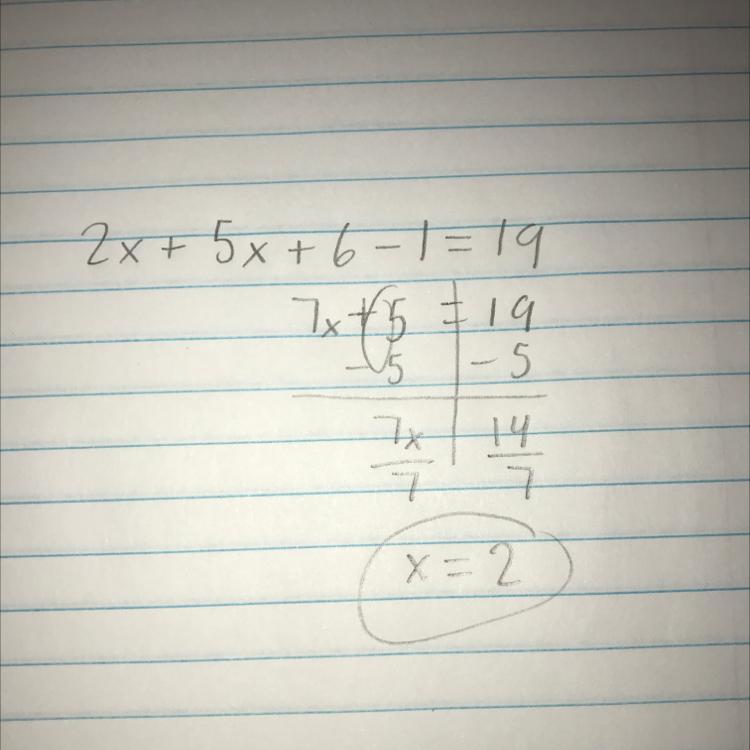 2x + 5x + 6 - 1 = 19
7x + 5 = 19
- 5 - 5
7x 14
7 7
x = 2